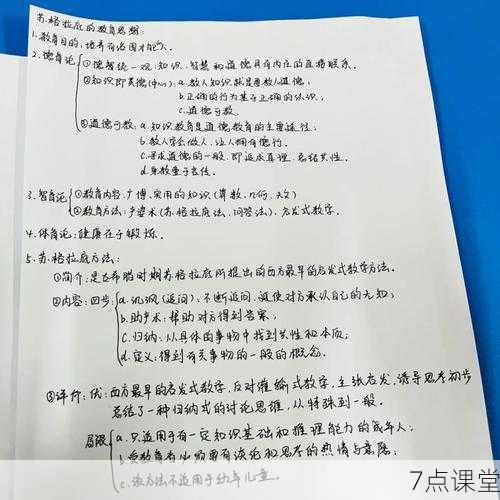 苏格拉底的教育思想:
1.教育目的:培养有治国才能人。
2.德育论
①德智统一观:知识、智慧和道德具有内在的直接联系。
②知识即美德(中心):a.教人知识就是要教人道德;
b.正确的行为基于正确的认识;
c.道德可教。
③道德可教:a.知识教育是道德教育的主要途径;
b.教人学会做人,让人拥有德行。
c.寻求道德的一般,即追求真理、总结共性。
d.身教重于言传。
3.智育论
①教育内容:广博、实用的知识(算数、几何、天文)
②教育方法:产婆术(苏格拉底法、问答法),启发式教学。
4.体育论:健康在于锻炼。
5.苏格拉底方法:
①简介:是古希腊时期苏格拉底所提出的西方最早的启发式教学方法。
②内容:四步
a.讥讽(追问):不断追问,迫使对方承认自己的无知;
b.助产术:帮助对方得到答案;
c.归纳:从具体的事物中找到共性和本质;
d.定义:得到有关事物的一般的概念。
③评价:优:西方最早的启发式教学,反对灌输式教学,主张启发、诱导思考初步
总结了一种归纳式的讨论思维,从特殊到一般。
局限
a.只适用于有一定知识基础和推理能力的成年人;
b.受教育者必须要有谈论和思考的热情与意愿;
c.该方法不适用于幼年儿童。
7点课堂